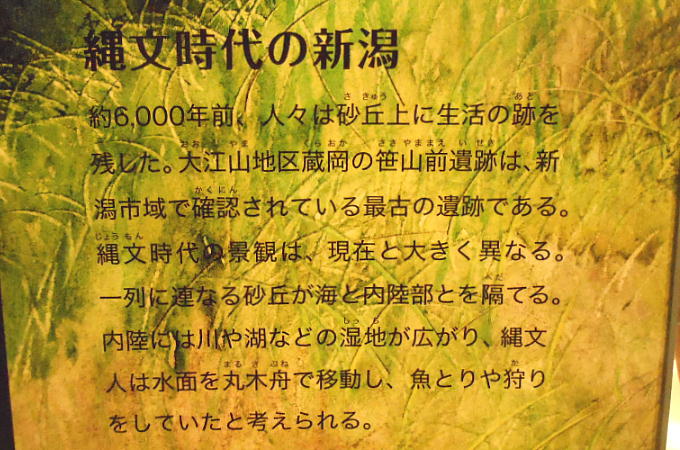 縄文時代の新潟
約6,000年前、人々は砂丘上に生活の跡を
残した。大江山地区蔵岡の笹山前遺跡は、新
潟市域で確認されている最古の遺跡である。
縄文時代の景観は、現在と大きく異なる。
一列に連なる砂丘が海と内陸部とを隔てる。
内陸には川や湖などの湿地が広がり、縄文
人は水面を丸木舟で移動し、魚とりや狩り
をしていたと考えられる。